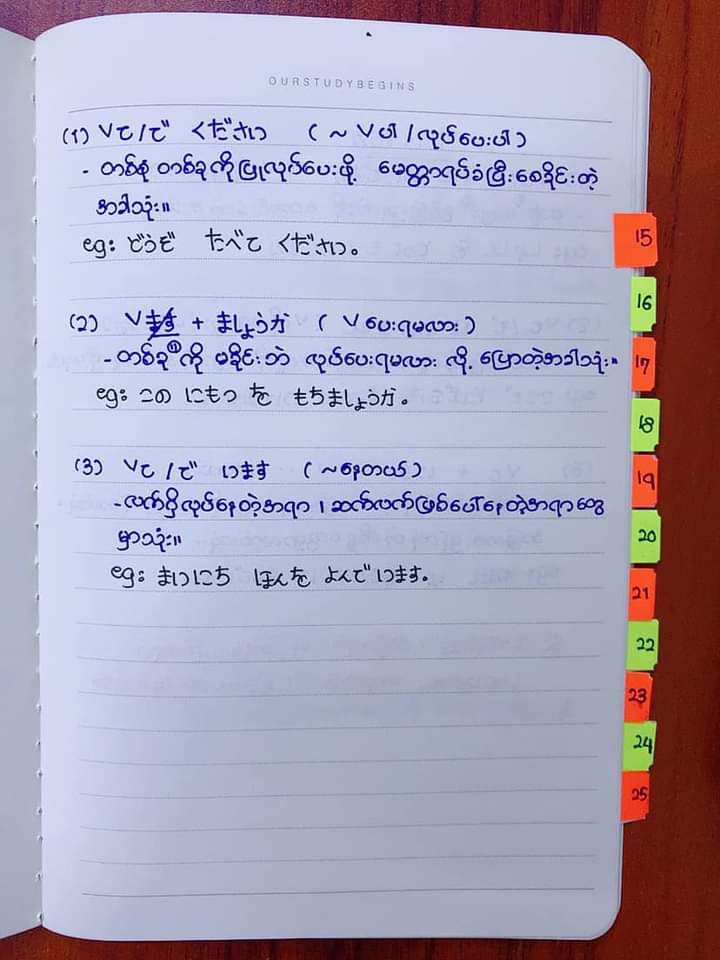 OURSTUDYBEGINS
(1) Vて/で ください ( ~ Vပါ / လုပ်ပေးပါ )
- တစ်စုံ တစ်ခုကို ပြုလုပ်ပေးဖို့ မေတ္တာရပ်ခံပြီးစေခိုင်းတဲ့
အခါသုံး။
eg: どうぞ たべて ください。
(2) Vます + ましょうか ( V ပေးရမလား )
- တစ်ခုခုကို မခိုင်းဘဲ လုပ်ပေးရမလား လို့ ပြောတဲ့အခါသုံး။
eg: この にもつ を もちましょうか。
(3) Vて/で います ( ~နေတယ် )
- လက်ရှိလုပ်နေတဲ့အရာ ၊ ဆက်လက်ဖြစ်ပေါ်နေတဲ့အရာတွေ
မှာသုံး။
eg: まいにち ほんを よんで います。
15
16
17
18
19
20
21
22
23
24
25